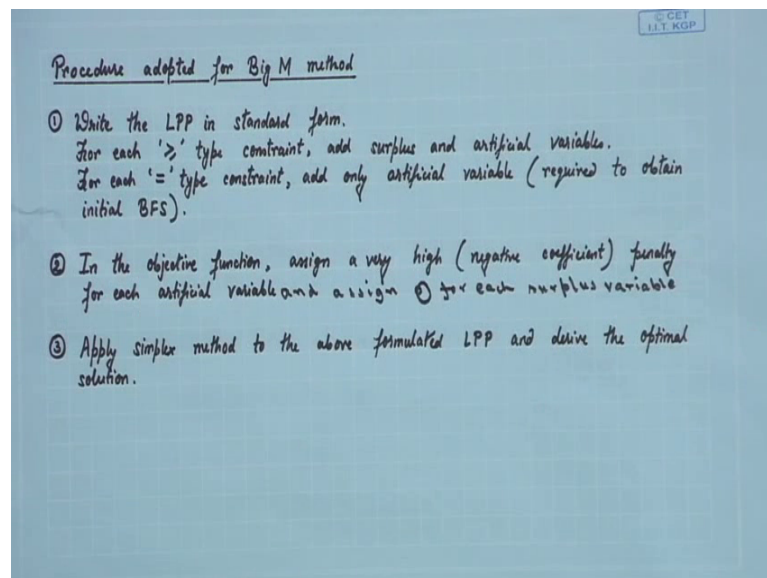 © CET
I.I.T. KGP
Procedure adopted for Big M method
① Write the LPP in standard form.
For each '≥' type constraint, add surplus and artificial variables.
For each '=' type constraint, add only artificial variable (required to obtain
initial BFS).
② In the objective function, assign a very high (negative coefficient) penalty
for each artificial variable and assign 0 for each surplus variable
③ Apply simplex method to the above formulated LPP and derive the optimal
solution.